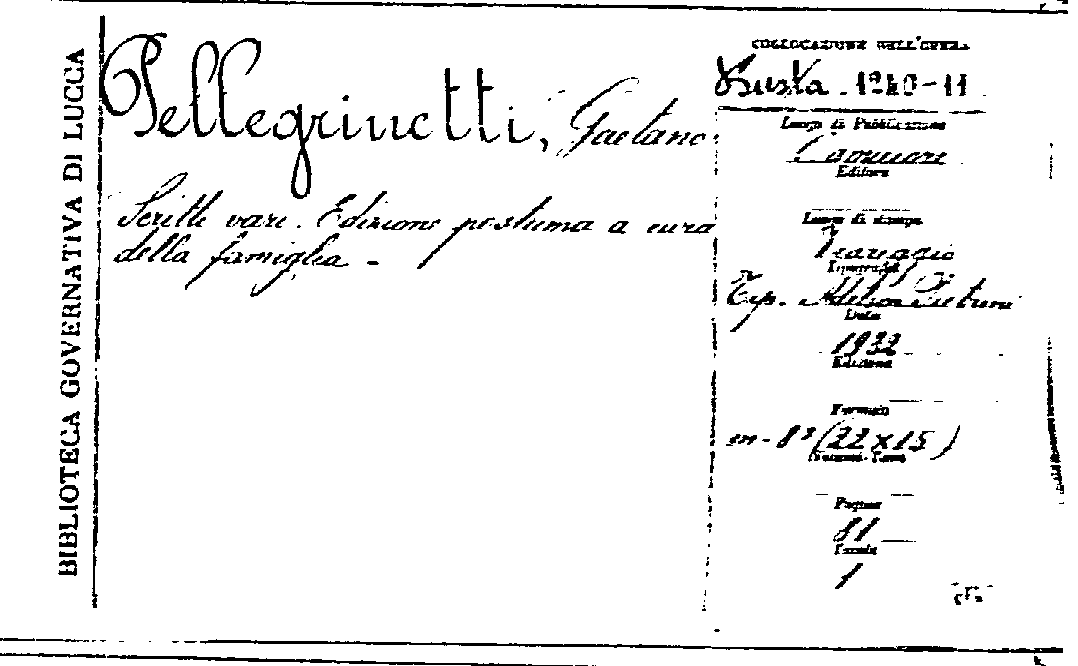 BIBLIOTECA GOVERNATIVA DI LUCCA
Pellegrinetti, Gaetano
Scritti vari. Edizione postuma a cura
della famiglia -
COLLOCAZIONE DELL'OPERA
Busta 1240-11
Luogo di Pubblicazione
Camaiore
Editore
Luogo di stampa
Viareggio
Tipografia
Tip.
Data
1932
Edizione
Formato
in-8° (22x15)
Pagine
81
Tavole
1